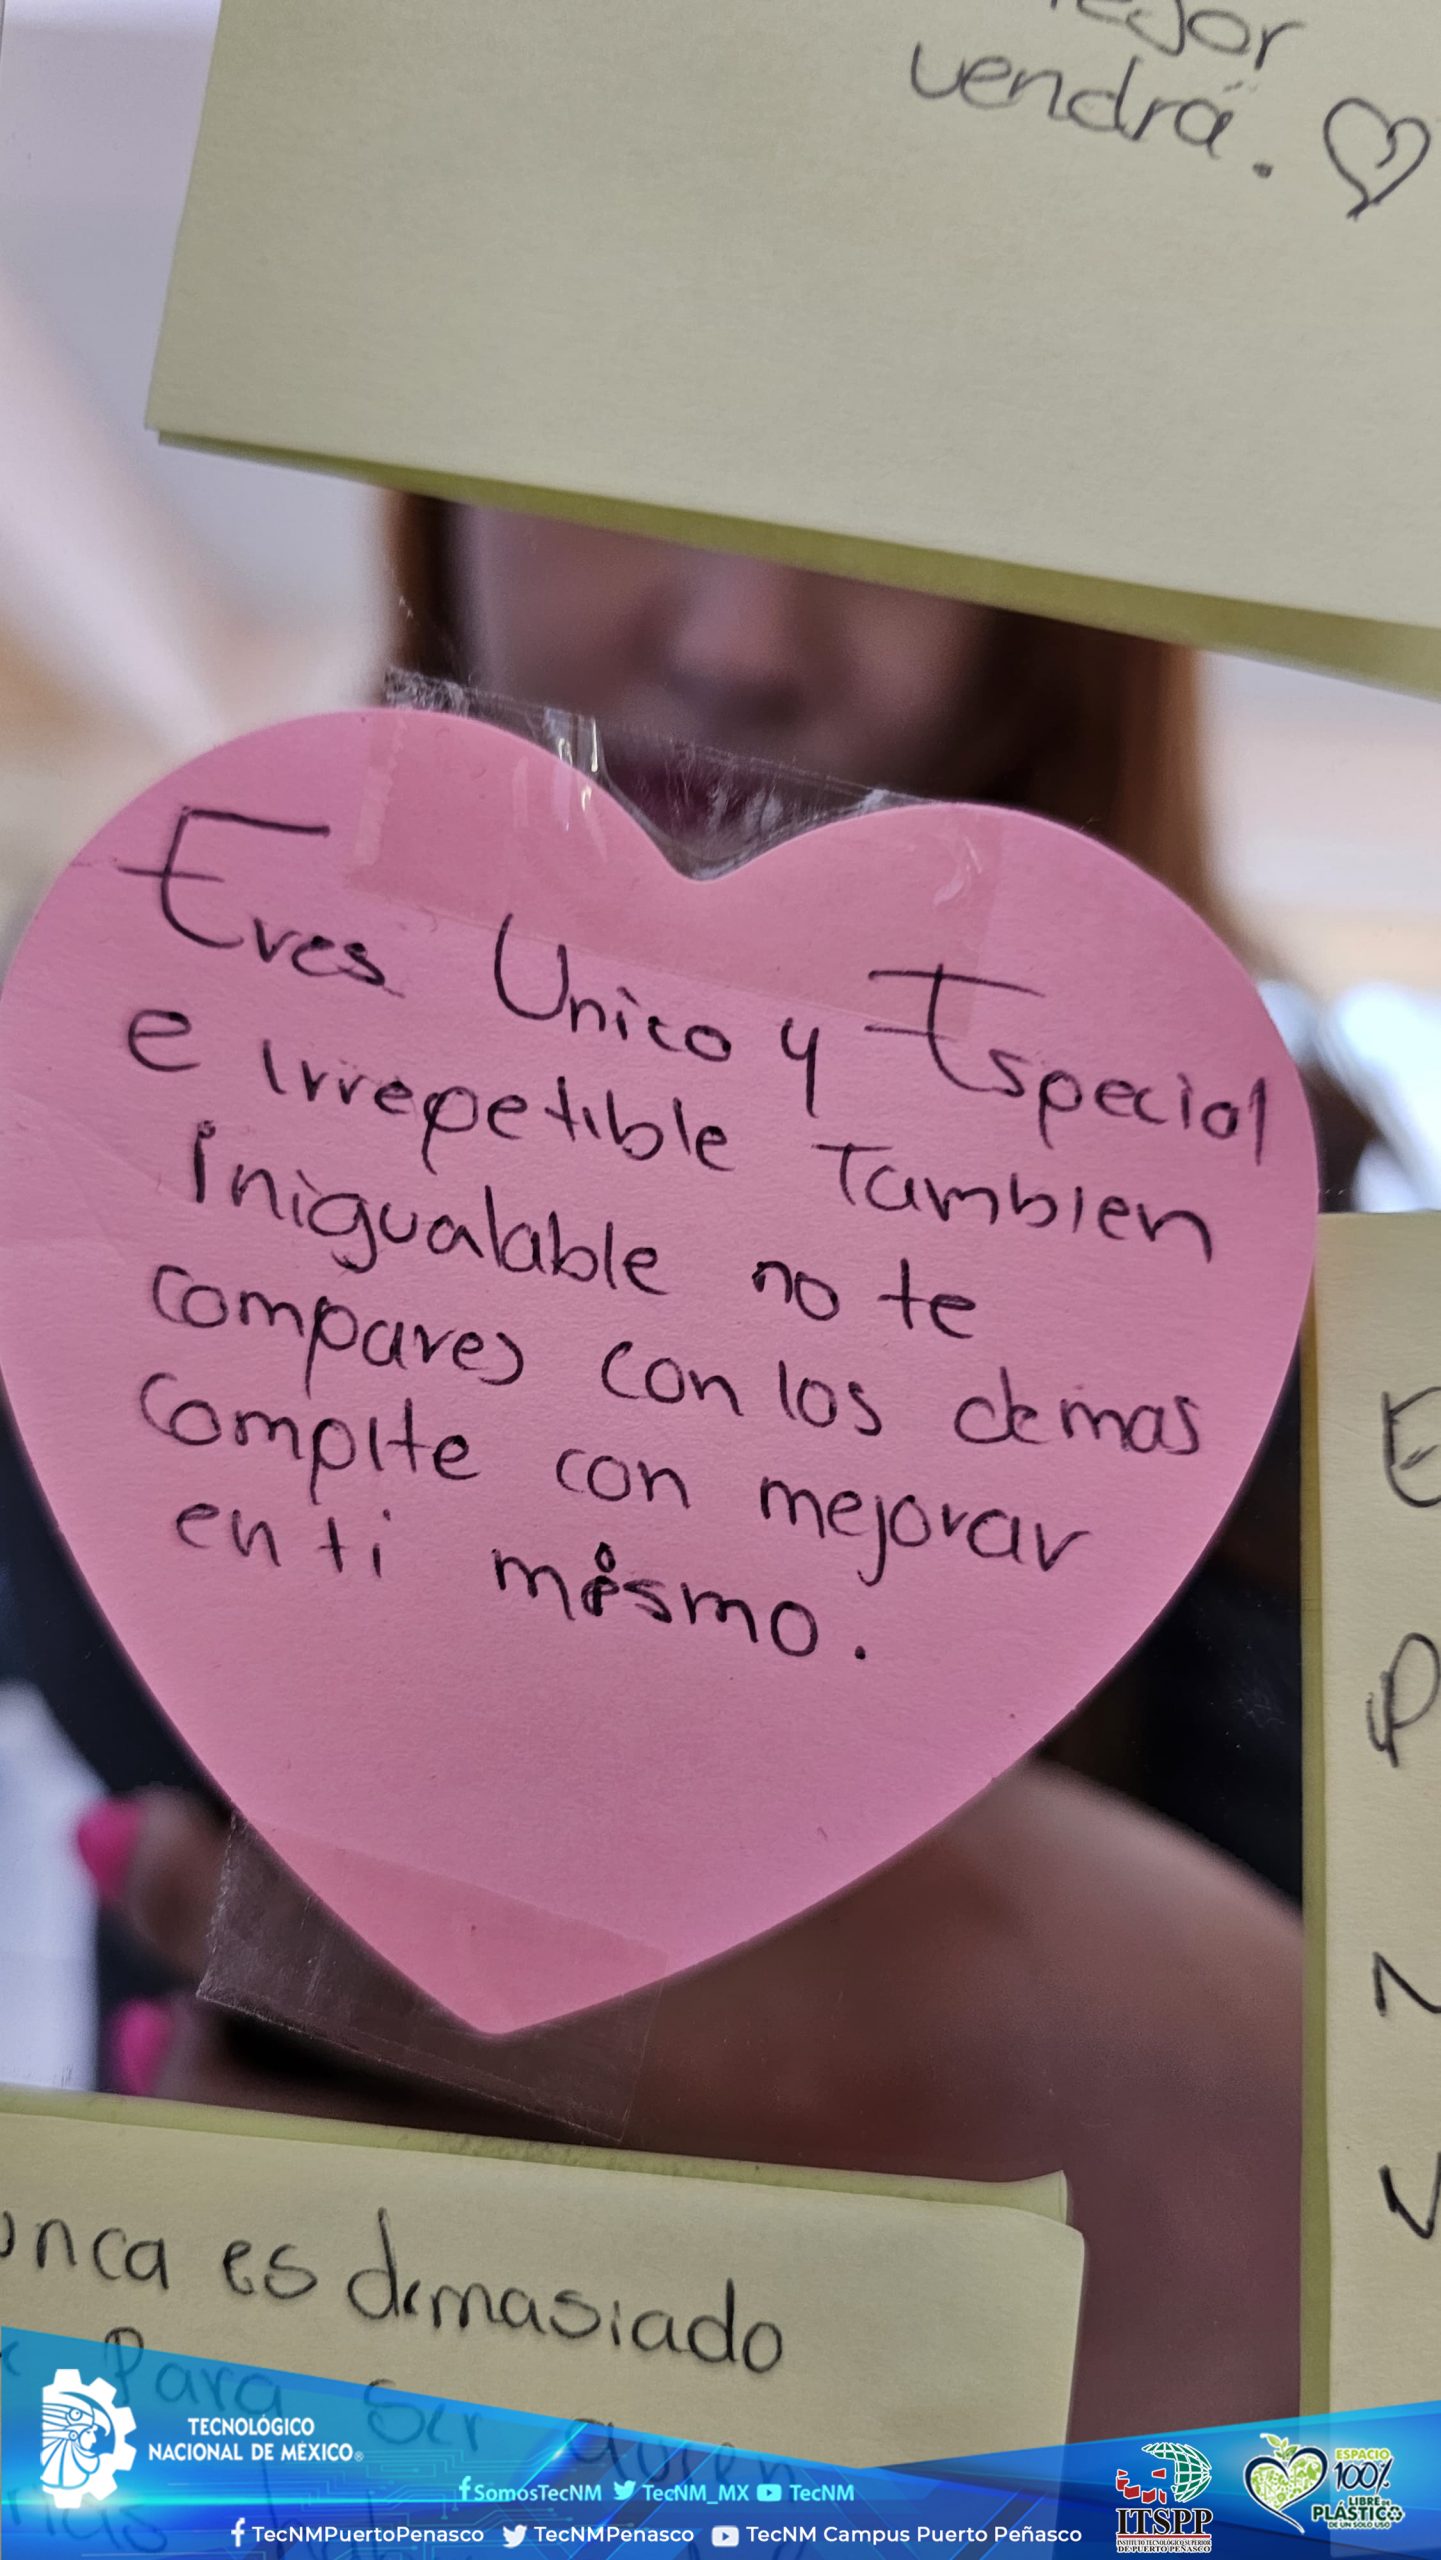 vendrá.
Eres Unico y Especial
e irrepetible Tambien
inigualable no te
compares con los demas
compite con mejorar
en ti mismo.
es demasiado
Para ser quien
TECNOLÓGICO
NACIONAL DE MÉXICO®
SomosTecNM TecNM_MX TecNM
TecNMPuertoPenasco TecNMPenasco TecNM Campus Puerto Peñasco
ITSPP
INSTITUTO TECNOLÓGICO SUPERIOR
DE PUERTO PEÑASCO
ESPACIO
100%
LIBRE DE
PLÁSTICO
DE UN SOLO USO